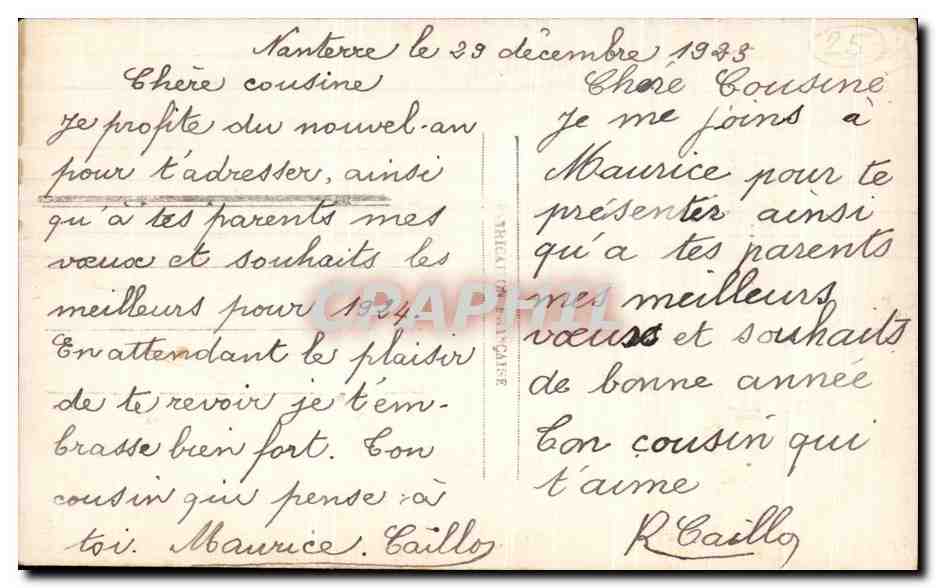 25
Nanterre le 29 décembre 1923
Chère cousine
Je profite du nouvel-an
pour t'adresser, ainsi
qu'à tes parents mes
vœux et souhaits les
meilleurs pour 1924.
En attendant le plaisir
de te revoir je t'em-
brasse bien fort. Ton
cousin qui pense à
toi. Maurice. Caillo
FABRICATION FRANÇAISE
CPAPHIL
Chère Cousine
Je me joins à
Maurice pour te
présenter ainsi
qu'a tes parents
mes meilleurs
vœux et souhaits
de bonne année
Ton cousin qui
t'aime
R Caillo